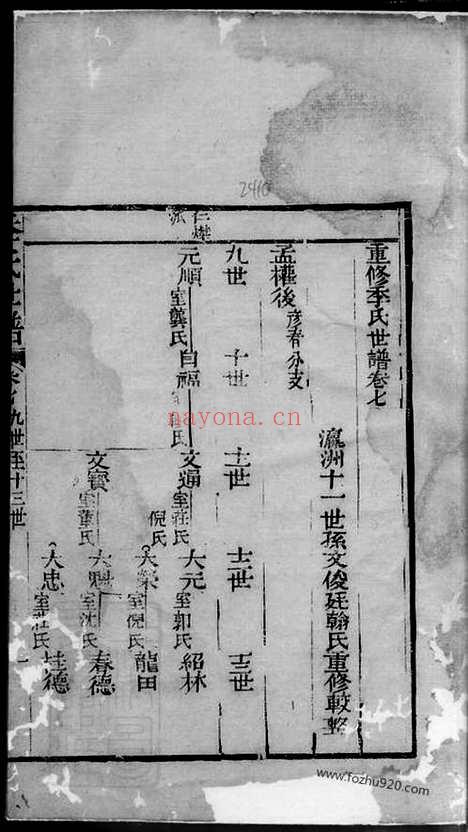 2410
重修季氏世譜卷七
瀛洲十一世孫文俊廷翰氏重修較整
孟權後 彥春分支
九世 十世 十一世 十二世 十三世
元順 室龔氏 自福 文通 室莊氏 倪氏 大元 室郭氏 紹林
大榮 室倪氏 龍田
文寶 室龔氏 室沈氏 春德
大忠 室莊氏 桂德
九世至十三世
nayona.cn
www.fozhu920.com